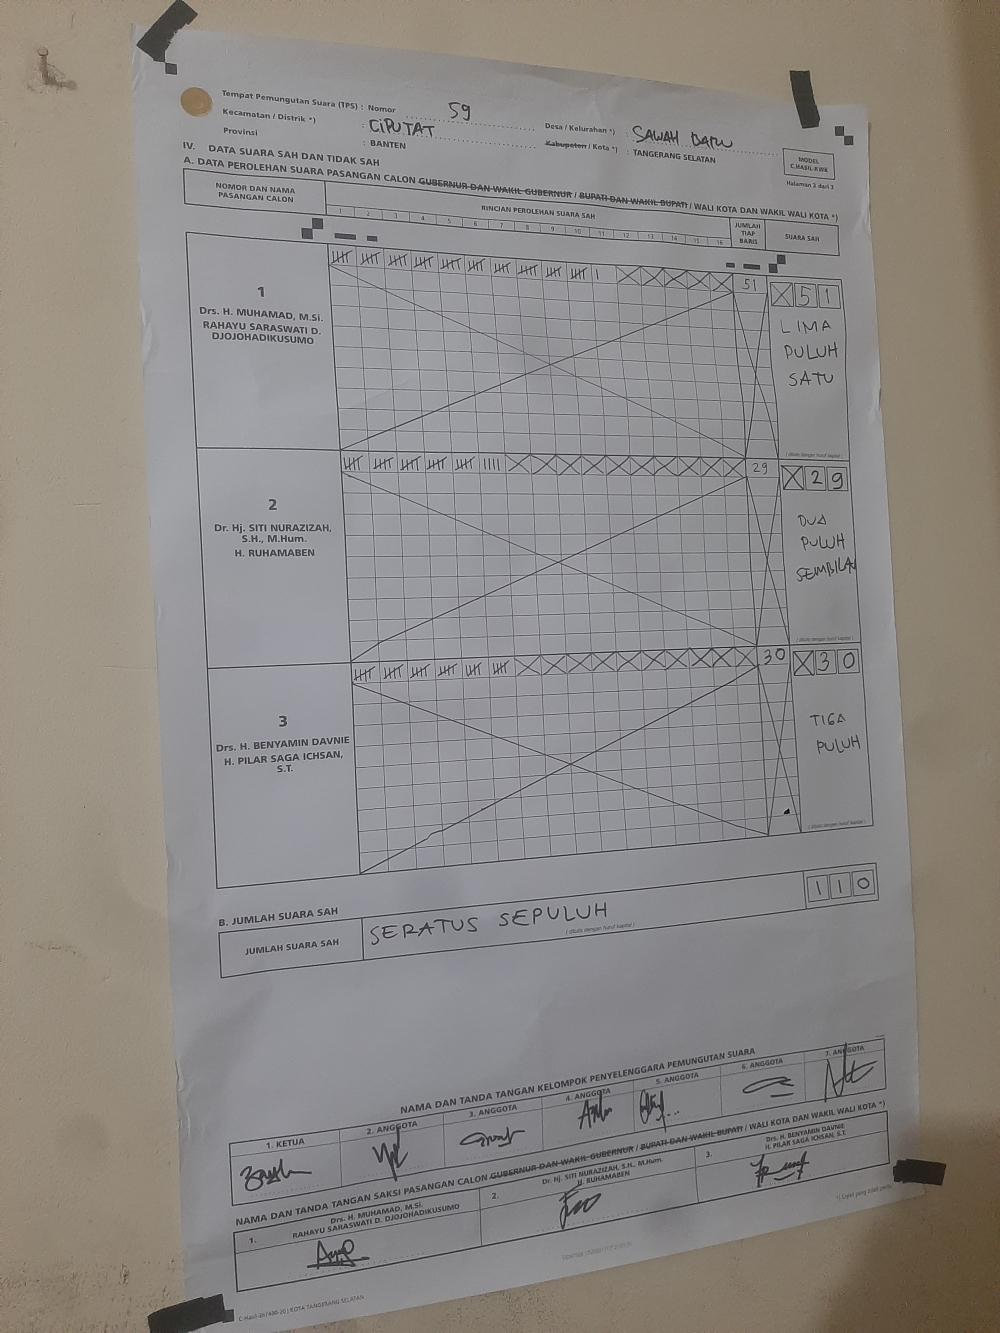 Tempat Pemungutan Suara (TPS) : Nomor 59 Desa / Kelurahan *) : SAWAH BARU
Kecamatan / Distrik *) : CIPUTAT Kabupaten / Kota *) : TANGERANG SELATAN
Provinsi : BANTEN
MODEL
C.HASIL-KWK
Halaman 2 dari 3
IV. DATA SUARA SAH DAN TIDAK SAH
A. DATA PEROLEHAN SUARA PASANGAN CALON GUBERNUR DAN WAKIL GUBERNUR / BUPATI DAN WAKIL BUPATI / WALI KOTA DAN WAKIL WALI KOTA *)
NOMOR DAN NAMA PASANGAN CALON
RINCIAN PEROLEHAN SUARA SAH
1 2 3 4 5 6 7 8 9 10 11 12 13 14 15 16
JUMLAH TIAP BARIS
SUARA SAH
1
Drs. H. MUHAMAD, M.Si.
RAHAYU SARASWATI D.
DJOJOHADIKUSUMO
51
X 5 1
LIMA
PULUH
SATU
( ditulis dengan huruf kapital )
2
Dr. Hj. SITI NURAZIZAH,
S.H., M.Hum.
H. RUHAMABEN
29
X 2 9
DUA
PULUH
SEMBILAN
( ditulis dengan huruf kapital )
3
Drs. H. BENYAMIN DAVNIE
H. PILAR SAGA ICHSAN,
S.T.
30
X 3 0
TIGA
PULUH
( ditulis dengan huruf kapital )
B. JUMLAH SUARA SAH
JUMLAH SUARA SAH
SERATUS SEPULUH
( ditulis dengan huruf kapital )
1 1 0
NAMA DAN TANDA TANGAN KELOMPOK PENYELENGGARA PEMUNGUTAN SUARA
1. KETUA
2. ANGGOTA
3. ANGGOTA
4. ANGGOTA
5. ANGGOTA
6. ANGGOTA
7. ANGGOTA
NAMA DAN TANDA TANGAN SAKSI PASANGAN CALON GUBERNUR DAN WAKIL GUBERNUR / BUPATI DAN WAKIL BUPATI / WALI KOTA DAN WAKIL WALI KOTA *)
1. Drs. H. MUHAMAD, M.Si.
RAHAYU SARASWATI D. DJOJOHADIKUSUMO
2. Dr. Hj. SITI NURAZIZAH, S.H., M.Hum.
H. RUHAMABEN
3. Drs. H. BENYAMIN DAVNIE
H. PILAR SAGA ICHSAN, S.T.
*) Coret yang tidak perlu
KOTA TANGERANG SELATAN